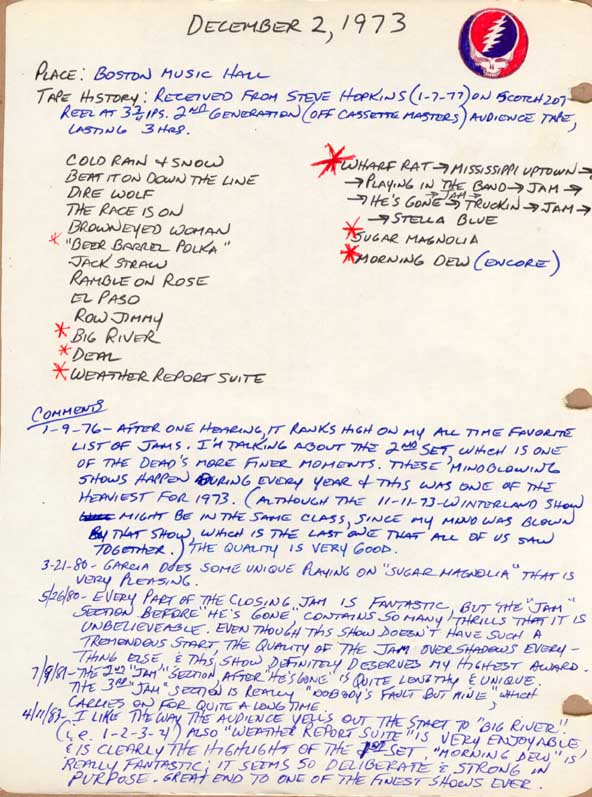 DECEMBER 2, 1973
PLACE: BOSTON MUSIC HALL
TAPE HISTORY: RECEIVED FROM STEVE HOPKINS (1-7-77) ON SCOTCH 207
REEL AT 3¾ IPS. 2ND GENERATION (OFF CASSETTE MASTERS) AUDIENCE TAPE,
LASTING 3 HRS.
COLD RAIN & SNOW
BEAT IT ON DOWN THE LINE
DIRE WOLF
THE RACE IS ON
BROWNEYED WOMAN
* "BEER BARREL POLKA"
JACK STRAW
RAMBLE ON ROSE
EL PASO
ROW JIMMY
* BIG RIVER
* DEAL
* WEATHER REPORT SUITE
* WHARF RAT → MISSISSIPPI UPTOWN →
→ PLAYING IN THE BAND → JAM →
→ HE'S GONE → JAM → TRUCKIN → JAM →
→ STELLA BLUE
* SUGAR MAGNOLIA
* MORNING DEW (ENCORE)
COMMENTS
1-9-76 - AFTER ONE HEARING, IT RANKS HIGH ON MY ALL TIME FAVORITE
LIST OF JAMS. I'M TALKING ABOUT THE 2ND SET, WHICH IS ONE
OF THE DEAD'S MORE FINER MOMENTS. THESE MINDBLOWING
SHOWS HAPPEN DURING EVERY YEAR & THIS WAS ONE OF THE
HEAVIEST FOR 1973. (ALTHOUGH THE 11-11-73-WINTERLAND SHOW
MIGHT BE IN THE SAME CLASS, SINCE MY MIND WAS BLOWN
BY THAT SHOW, WHICH IS THE LAST ONE THAT ALL OF US SAW
TOGETHER.) THE QUALITY IS VERY GOOD.
3-21-80 - GARCIA DOES SOME UNIQUE PLAYING ON "SUGAR MAGNOLIA" THAT IS
VERY PLEASING.
5/26/80 - EVERY PART OF THE CLOSING JAM IS FANTASTIC, BUT THE "JAM"
SECTION BEFORE "HE'S GONE" CONTAINS SO MANY THRILLS THAT IT IS
UNBELIEVEABLE. EVEN THOUGH THIS SHOW DOESN'T HAVE SUCH A
TREMENDOUS START, THE QUALITY OF THE JAM OVERSHADOWS EVERY-
THING ELSE & THIS SHOW DEFINITELY DESERVES MY HIGHEST AWARD.
7/9/81 - THE 2ND "JAM" SECTION, AFTER "HE'S GONE" IS QUITE LENGTHY & UNIQUE.
THE 3RD "JAM" SECTION IS REALLY "NOBODY'S FAULT BUT MINE", WHICH
CARRIES ON FOR QUITE A LONG TIME.
4/11/83 - I LIKE THE WAY THE AUDIENCE YELLS OUT THE START TO "BIG RIVER"!
(i.e. 1-2-3-4) ALSO "WEATHER REPORT SUITE" IS VERY ENJOYABLE
& IS CLEARLY THE HIGHLIGHT OF THE 1ST SET. "MORNING DEW" IS
REALLY FANTASTIC; IT SEEMS SO DELIBERATE & STRONG IN
PURPOSE. GREAT END TO ONE OF THE FINEST SHOWS EVER.